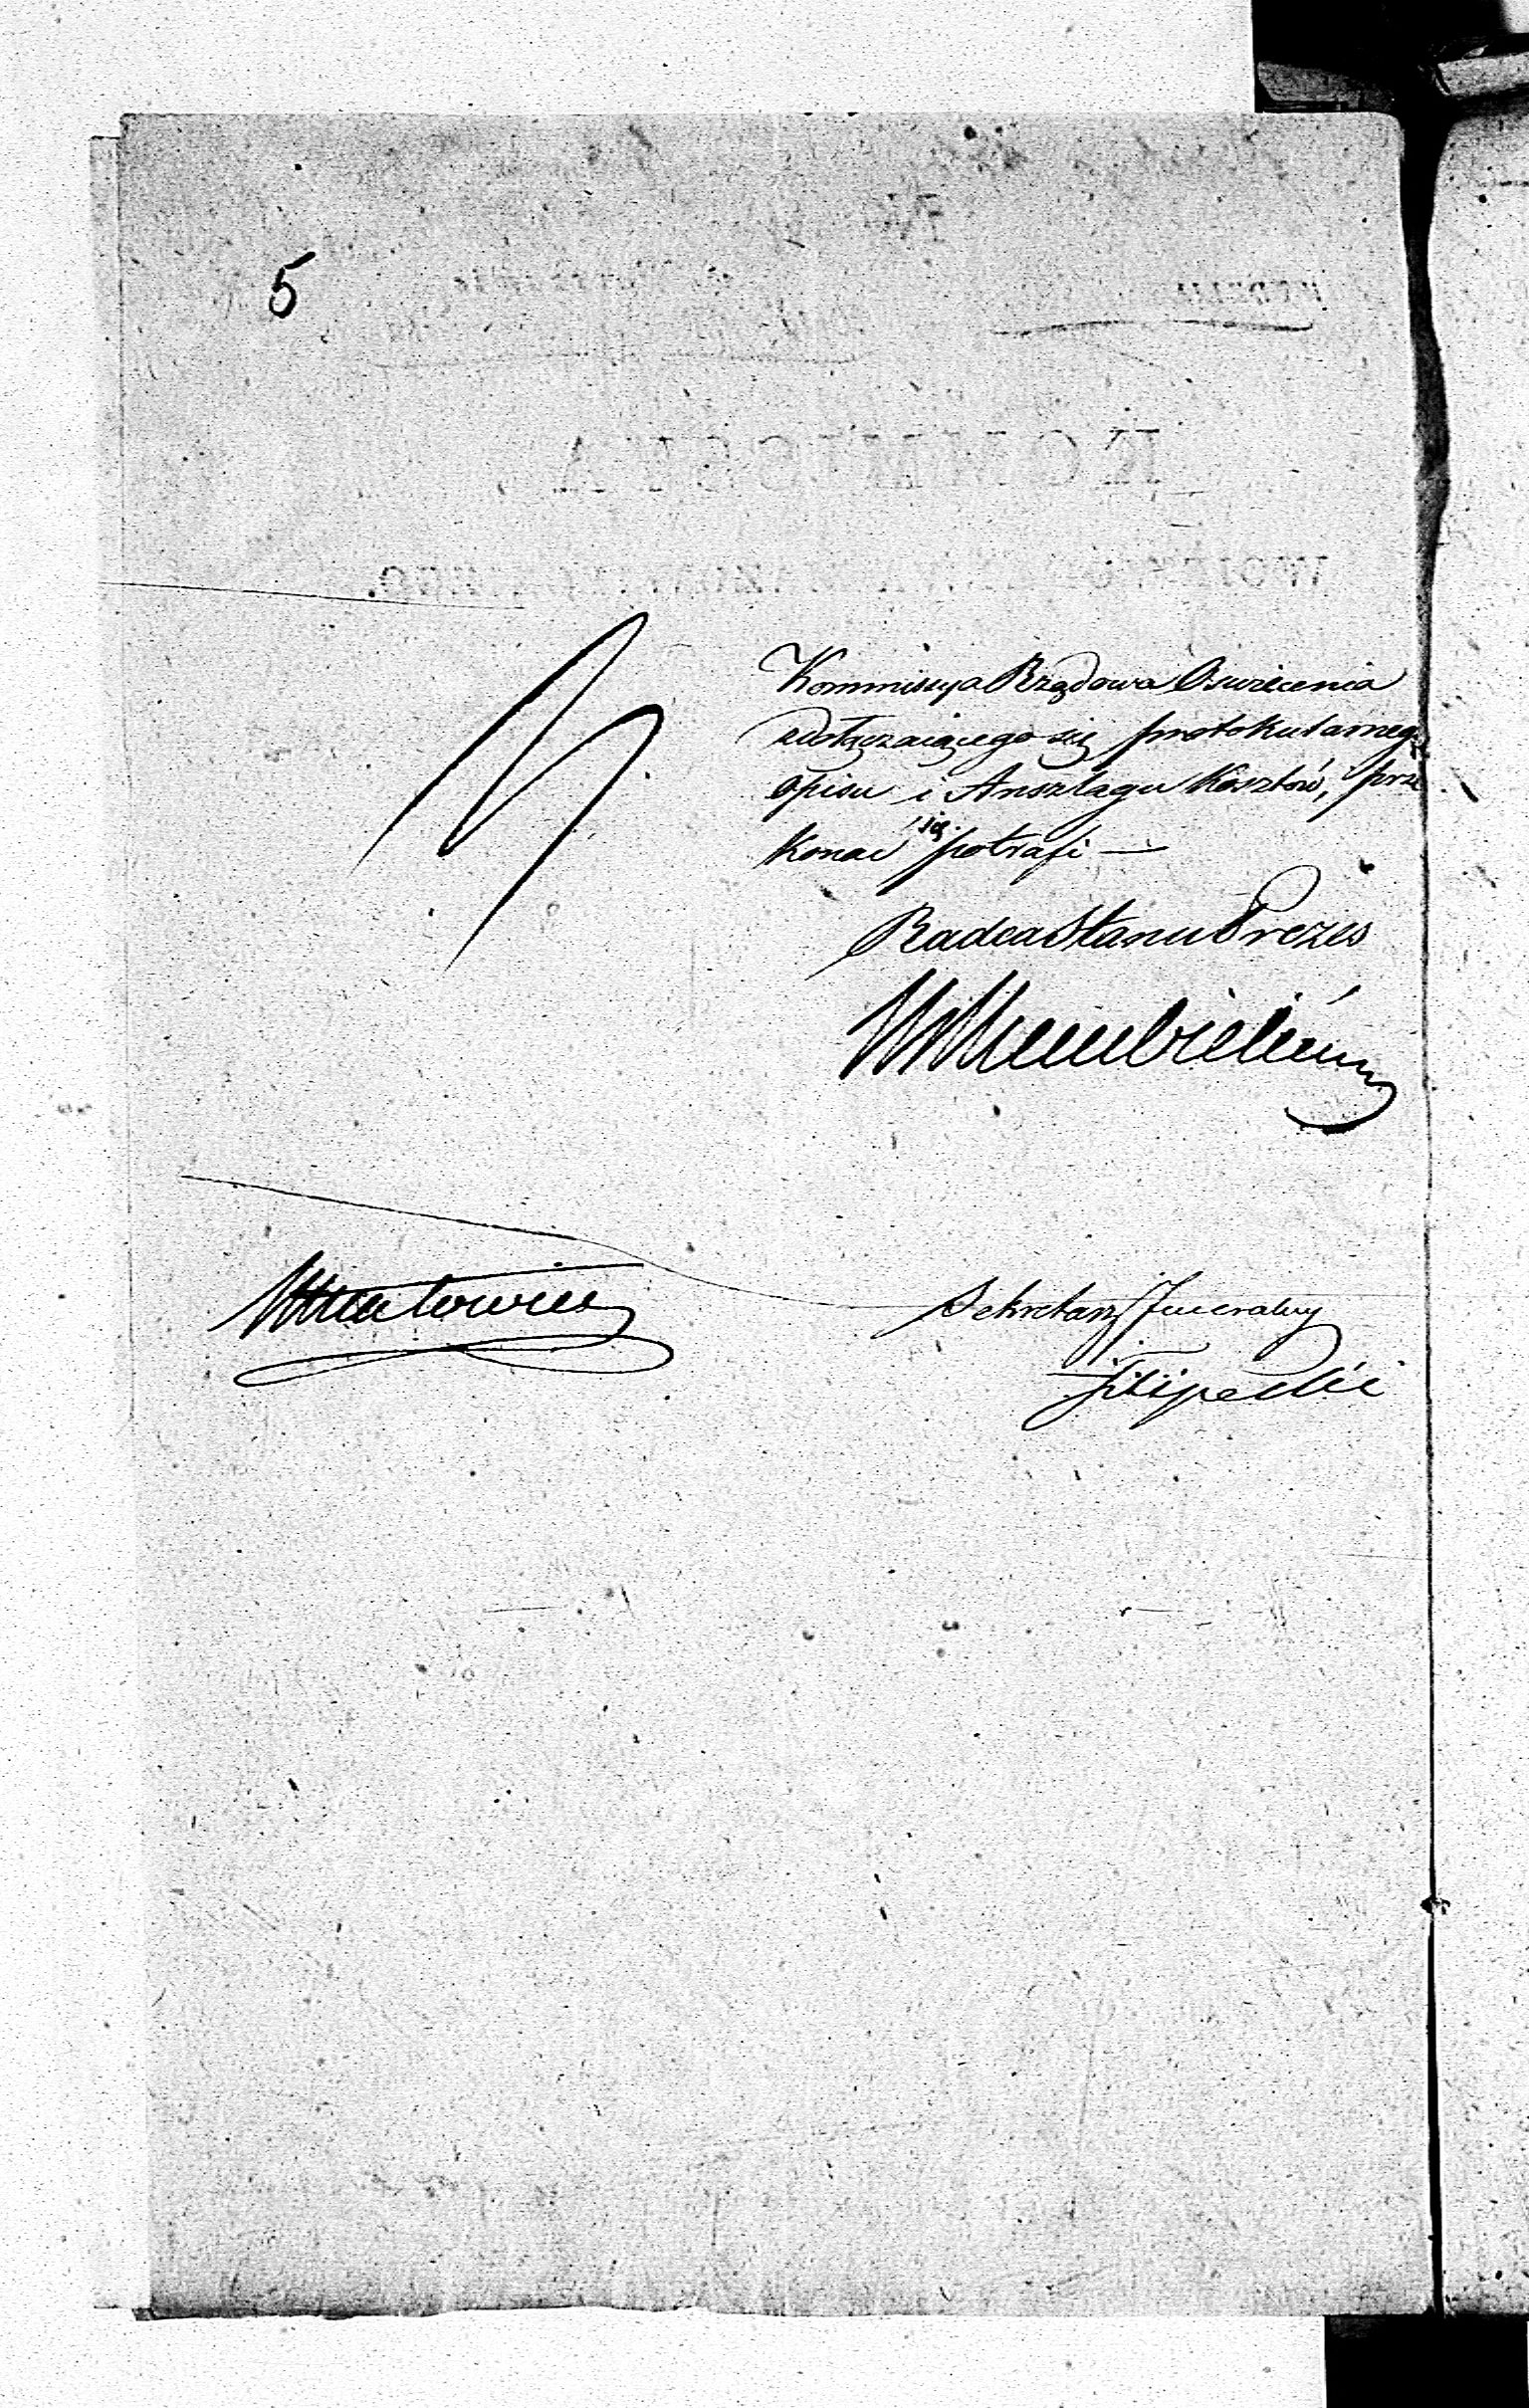 5
Kommissya Rządowa Oswiecenia
zdołączaiącego się protokularneg
opisu i Anszlagu Kosztów, prze
konać się potrafi —
Radca Stanu Prezes
Sekretarz Jeneralny
Filipecki